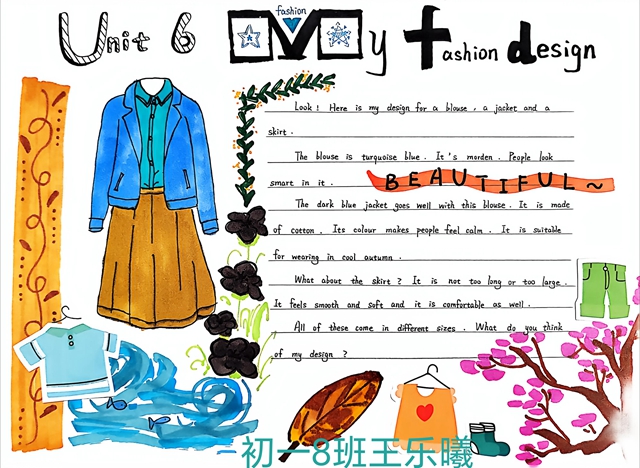 Unit 6 My fashion design
fashion
Look ! Here is my design for a blouse , a jacket and a
skirt .
The blouse is turquoise blue . It's morden . People look
smart in it .
BEAUTIFUL~
The dark blue jacket goes well with this blouse . It is made
of cotton . Its colour makes people feel calm . It is suitable
for wearing in cool autumn .
What about the skirt ? It is not too long or too large .
It feels smooth and soft and it is comfortable as well .
All of these come in different sizes . What do you think
of my design ?
初一8班王乐曦